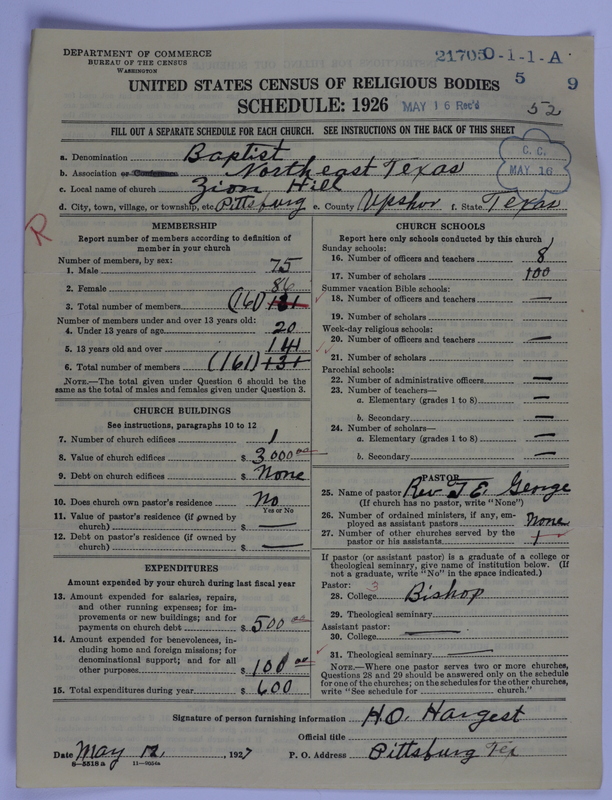 DEPARTMENT OF COMMERCE
BUREAU OF THE CENSUS
WASHINGTON
21705 0-1-1-A
5 9
UNITED STATES CENSUS OF RELIGIOUS BODIES
SCHEDULE: 1926
MAY 16 Rec'd
52
FILL OUT A SEPARATE SCHEDULE FOR EACH CHURCH. SEE INSTRUCTIONS ON THE BACK OF THIS SHEET
C. C.
MAY 16
a. Denomination Baptist
b. Association or Conference Northeast Texas
c. Local name of church Zion Hill
d. City, town, village, or township, etc. Pittsburg e. County Upshor f. State Texas
R
MEMBERSHIP
Report number of members according to definition of
member in your church
Number of members, by sex:
1. Male 75
2. Female 86
3. Total number of members (161) 131
Number of members under and over 13 years old:
4. Under 13 years of age 20
5. 13 years old and over 141
6. Total number of members (161) 131
NOTE.—The total given under Question 6 should be the
same as the total of males and females given under Question 3.
CHURCH BUILDINGS
See instructions, paragraphs 10 to 12
7. Number of church edifices 1
8. Value of church edifices $ 3000 00
9. Debt on church edifices $ None
10. Does church own pastor's residence No
Yes or No
11. Value of pastor's residence (if owned by
church) $ —
12. Debt on pastor's residence (if owned by
church) $ —
EXPENDITURES
Amount expended by your church during last fiscal year
13. Amount expended for salaries, repairs,
and other running expenses; for im-
provements or new buildings; and for
payments on church debt $ 500 00
14. Amount expended for benevolences, in-
cluding home and foreign missions; for
denominational support; and for all
other purposes $ 100 00
15. Total expenditures during year $ 600
CHURCH SCHOOLS
Report here only schools conducted by this church
Sunday schools:
16. Number of officers and teachers 8
17. Number of scholars 100
Summer vacation Bible schools:
18. Number of officers and teachers —
19. Number of scholars
Week-day religious schools:
20. Number of officers and teachers —
21. Number of scholars
Parochial schools:
22. Number of administrative officers —
23. Number of teachers—
a. Elementary (grades 1 to 8) —
b. Secondary —
24. Number of scholars—
a. Elementary (grades 1 to 8) —
b. Secondary —
PASTOR
25. Name of pastor Rev J E. George
(If church has no pastor, write "None")
26. Number of ordained ministers, if any, em-
ployed as assistant pastors None
27. Number of other churches served by the
pastor or his assistants 1
If pastor (or assistant pastor) is a graduate of a college or
theological seminary, give name of institution below. (If
not a graduate, write "No" in the space indicated.)
Pastor: 3
28. College Bishop
29. Theological seminary
Assistant pastor:
30. College —
31. Theological seminary —
NOTE.—Where one pastor serves two or more churches,
Questions 28 and 29 should be answered only on the schedule
for one of the churches; on the schedules for the other churches,
write "See schedule for church."
Signature of person furnishing information H.O. Hargest
Official title
Date May 12, 1927 P. O. Address Pittsburg Tex
8—5518 a 11—9034a